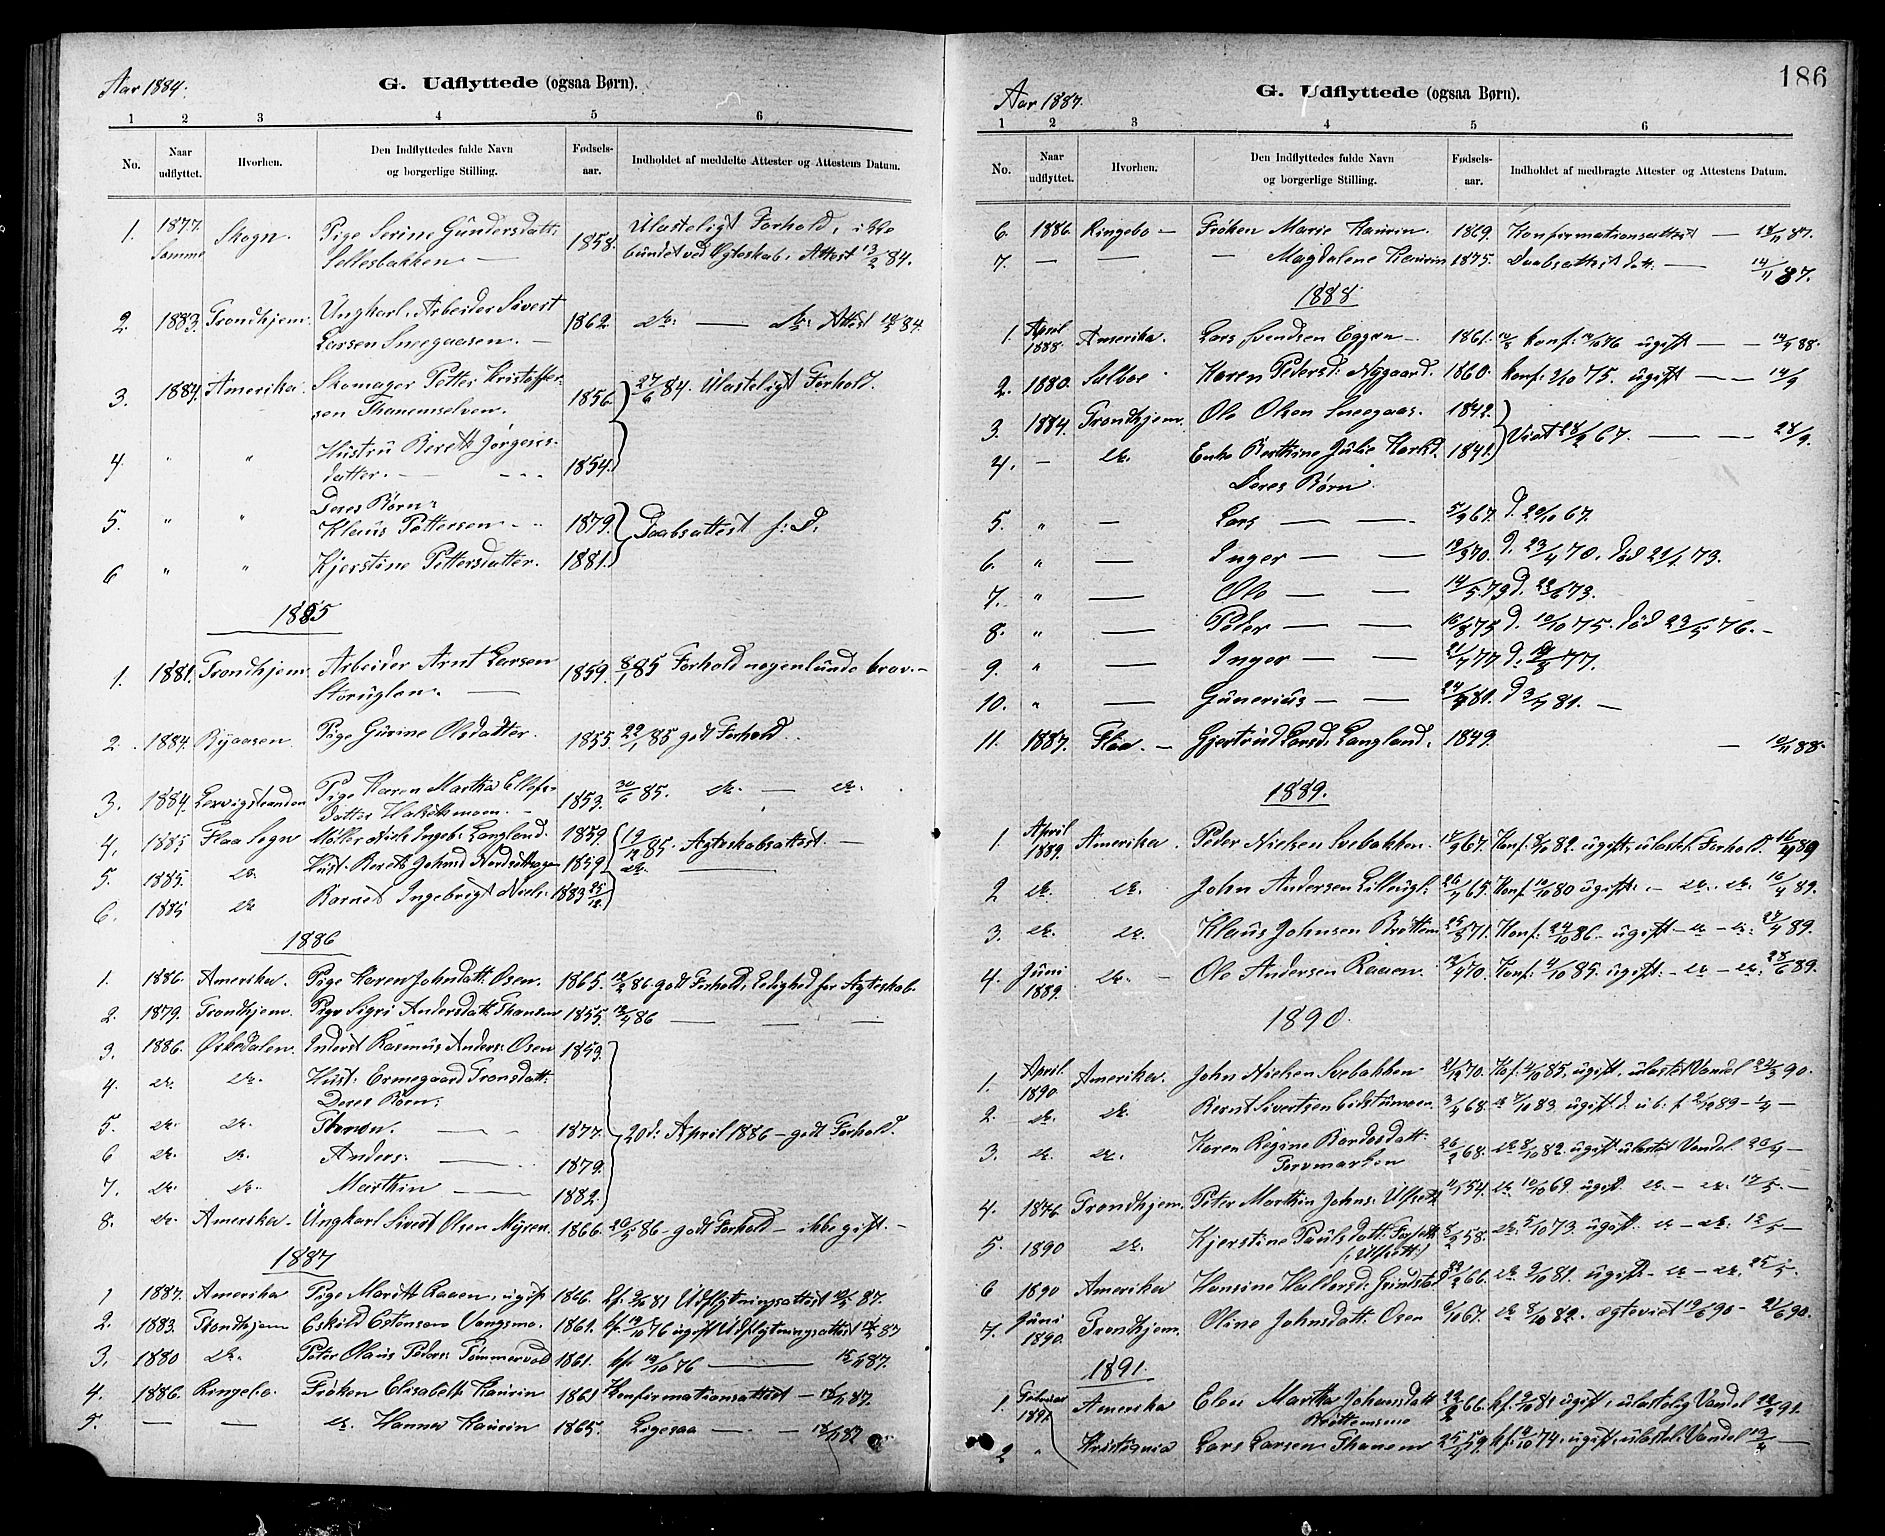 Aar 1884.
G. Udflyttede (ogsaa Børn).
1 2 3 4 5 6
No. Naar udflyttet. Hvorhen. Den Indflyttedes fulde Navn og borgerlige Stilling. Fødsels-aar. Indholdet af meddelte Attester og Attestens Datum.
1. 1877. Skogn. Pige Serine Gundersdatt: 1858. Ulasteligt Forhold, ikke
bundet ved Egteskab. Attest 13/2 84.
2. 1883. Trondhjem. Ungkarl, Arbeider Sivert 1862.
Larsen Sneegaasen. —
3. 1884. Amerika. Skomager Petter Kristoffer- 1856. 27/6 84. Ulasteligt Forhold.
sen Thanemselven.
4. " " Hustru Bereth Jørgens- 1854.
datter. —
Deres Børn:
5. " " Klaus Pettersen 1879. Daabsattest f: D.
6 " " Kjerstine Pettersdatter. 1881.
1885
1. 1881. Trondhjem Arbeider Arnt Larsen 1859. 8/1 85 Forhold nogenlunde brav. —
Storuglen. —
2. 1884. Byaasen. Pige Gurine Olsdatter. 1855. 22/1 85 godt Forhold.
3. 1884. Pige Karen Martha Ellefs- 1853. 85. do. — do.
datter
4. 1885 Flaa Sogn Møller Niels Ingebr: Langland. 1859. 19/12 85. Ægteskabsattest. —
5. 1885. do. Hust. Bereth Johnsd 1859 do. —
6. 1885 do Barnet Ingebrigt Niels: 1883
1886
1. 1886. Amerika. Pige Karen Johnsdatt. Osen. 1865. 86 godt Forhold, Ledighed for Ægteskab.
2. 1879. Trondhjem. Pige Sigri Andersdatt. Thanem 1855. 86 — — —
3. 1886. Ørkedalen. Inderst Rasmus Anders: Osen 1853.
4. do. do. Hust: Ermegaard Tronsdatt:
Deres Børn:
5. do. do. 1877. 20d: April 1886 — godt Forhold.
6 do. do. Anders: — 1879.
7. do. do. Marthin — 1882.
8. do. Amerika. Ungkarl Sivert Olsen Myren. 1866. 20/5 86 — godt Forhold — ikke gift. —
1887
1 1887. Amerika Pige Marith Raaen, ugift 1866. kf. 81 Udflytningsattest 87.
2. 1883. Trondhjem Eskild Estensen Vangsmo. 1861. kf. 76 ugift Udflytningsattest 87
3. 1880 do. Peter Olaus Peders: Tømmervold 1861. kf. 76 — 87.
4. 1886. Ringebo. Frøken Elisabeth Kaurin 1861 Konfirmationsattest — 87.
5. — — do. Hanna Kaurin 1865. Ligesaa — 87
186
Aar 1887.
G. Udflyttede (ogsaa Børn).
1 2 3 4 5 6
No. Naar udflyttet. Hvorhen. Den Indflyttedes fulde Navn og borgerlige Stilling. Fødsels-aar. Indholdet af medbragte Attester og Attestens Datum.
6. 1886. Ringebo — Frøken Marie Kaurin. 1869. Konfirmationsattest — 87.
7. — — — Magdalene Kaurin 1875. Daabsattest — 14/11 87.
1888
1. April 1888 Amerika. Lars Svendsen Eggen 1861. konf: 76 ugift — 88.
2. 1880. Selboe. Karen Pedersd. Nygaard. 1860. konf: 75. ugift —
3. 1884. Trondhjem. Ole Olsen Sneegaas. 1842. Viet 67. — 28/9.
4. — do. Berthine Julie 1841.
Deres Børn.
5. " — Lars — — 67. d. 20/10 67.
6. " — Inger — — 70. d. 23/4 70. død 73.
7. " — Ole — — 73 d. 22/6 73.
8. " — Peder — — 75 d. 10/10 75. død 76. —
9. " — Inger — — 77 d. 77.
10. " — Gunerius — — 81. d 81. —
11. 1887. Flaa. — Gjertrud Larsd. Langland. 1849. — 88.
1889.
1. April 1889. Amerika. Peder Nielsen Svebakken. 67. Konf. 82. ugift, ulastel. Forhold. 16/4 89
2 do. do. John Andersen 65. Konf. 80 ugift: — do. do. 16/4 89.
3. do. do. Klaus Johnsen Brøttem 71. Konf: 24/10 86 — ugift — do — do. 89.
4. Juni 1889. do. — Ole Andersen Raaen. 70. Konf. 85. ugift: — do — do. 28/6 89.
1890.
1. April 1890 Amerika. John Nielsen Svebakken 70. 85, ugift, ulastet Vandel 90.
2. do. do. Bernt Sivertsen 68. do 83. ugift
3. do. do. Karen Regine Bardosdatt: 26/2 68. do 8/10 82. ugift ulastet Vandel
Torvmarken
4. 1876. Trondhjem. Peter Marthin Johns: 54. do 10/10 69. ugift. do. — do.
5. 1890 do. Kjerstine Paulsdatt. 58. do. 5/10 73. ugift. do — do.
6 1890 Amerika Hansine Haldorsd. Grindstad 66. do. 81. ugift — do — do. 25/5.
7. Juni 1890. Trondhjem. Oline Johnsdatt. Osen 67. do 8/10 82. ægteviet 90 — 90.
1891.
1. 1891 Amerika Elen Martha Johansdatt 66. kf. 81 ugift, ulastelig Vandel 91.
2 " Kristiania Lars Larsen Thanem 25/4 59. kf. 74, ugift, ulastel. Vandel —